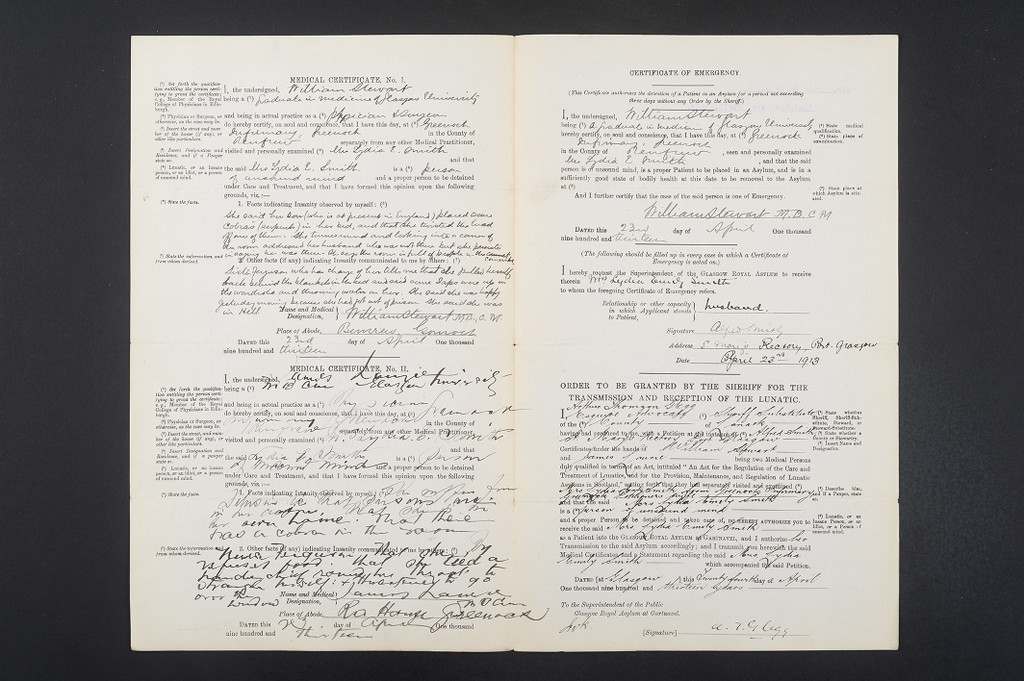 MEDICAL CERTIFICATE, No. I.
(1) Set forth the qualification entitling the person certifying to grant the certificate; e.g., Member of the Royal College of Physicians in Edinburgh.
I, the undersigned, William Stewart
being a (1) graduate in medicine of Glasgow University
(2) Physician or Surgeon, or otherwise, as the case may be.
and being in actual practice as a (2) Physician & Surgeon
(3) Insert the street and number of the house (if any), or other like particulars.
do hereby certify, on soul and conscience, that I have this day, at (3) Greenock
Infirmary, Greenock in the County of
Renfrew separately from any other Medical Practitioner,
(4) Insert Designation and Residence, and if a Pauper state so.
visited and personally examined (4) Mrs Lydia E. Smith
and that
the said Mrs Lydia E. Smith is a (5) person
(5) Lunatic, or an insane person, or an idiot, or a person of unsound mind.
of unsound mind and a proper person to be detained
under Care and Treatment, and that I have formed this opinion upon the following
grounds, viz.:—
(6) State the facts.
1. Facts indicating Insanity observed by myself: (6)
She said her son (who is at present in England) placed some
cobras (serpents) in her bed, and that she twisted the head
off one of them. She turned round and looking into a corner of
the room addressed her husband who was not there but she persists
in saying he was there. She says the room is full of people
(7) State the information, and from whom derived.
2. Other facts (if any) indicating Insanity communicated to me by others: (7)
Sister Ferguson who has charge of her tells me that she pulled herself
back behind the blankets in the bed and said some Japs was up in
the wardrobe and throwing water on her. She said she was happy
yesterday morning because she had got out of prison. She said she was
in Hell.
Name and Medical Designation, William Stewart M.B., C.M.
Place of Abode, Gourock
DATED this 23rd day of April One thousand
nine hundred and thirteen
MEDICAL CERTIFICATE, No. II.
(1) Set forth the qualification entitling the person certifying to grant the certificate; e.g., Member of the Royal College of Physicians in Edinburgh.
I, the undersigned, James Laurie
being a (1) M B C M Glasgow University
(2) Physician or Surgeon, or otherwise, as the case may be.
and being in actual practice as a (2) Physician
(3) Insert the street and number of the house (if any), or other like particulars.
do hereby certify, on soul and conscience, that I have this day, at (3) Greenock
in the County of
separately from any other Medical Practitioner,
(4) Insert Designation and Residence, and if a Pauper state so.
visited and personally examined (4) Lydia E. Smith
and that
the said Lydia E Smith is a (5) Person
(5) Lunatic, or an insane person, or an idiot, or a person of unsound mind.
of unsound mind and a proper person to be detained
under Care and Treatment, and that I have formed this opinion upon the following
grounds, viz.:—
(6) State the facts.
1. Facts indicating Insanity observed by myself: (6)
her own home. That there
was a cobra in the room
(7) State the information, and from whom derived.
2. Other facts (if any) indicating Insanity communicated to me by others: (7)
Nurse Ferguson that she
refuses food. That she tied a
handkerchief round her throat to
strangle herself & threatened to go
over the window
Name and Medical Designation, James Laurie M B C M
Place of Abode, House Greenock
DATED this day of April One thousand
nine hundred and thirteen
CERTIFICATE OF EMERGENCY.
(This Certificate authorizes the detention of a Patient in an Asylum for a period not exceeding
three days without any Order by the Sheriff.)
I, the undersigned, William Stewart
being (1) a graduate in medicine of Glasgow University
(1) State medical qualification.
hereby certify, on soul and conscience, that I have this day, at (2) Greenock
(2) State place of examination.
Infirmary, Greenock
in the County of Renfrew, seen and personally examined
Mrs Lydia E. Smith, and that the said
person is of unsound mind, is a proper Patient to be placed in an Asylum, and is in a
sufficiently good state of bodily health at this date to be removed to the Asylum
at (3)
(3) State place at which Asylum is situated.
And I further certify that the case of the said person is one of Emergency.
William Stewart M.B. C M
DATED this 23rd day of April One thousand
nine hundred and thirteen
(The following should be filled up in every case in which a Certificate of
Emergency is acted on.)
I hereby request the Superintendent of the GLASGOW ROYAL ASYLUM to receive
therein Mrs Lydia Emily Smith
to whom the foregoing Certificate of Emergency refers.
Relationship or other capacity in which Applicant stands to Patient, husband.
Signature Alfred Smith
Address S. Mary's Rectory, Port-Glasgow
Date April 23rd 1913
ORDER TO BE GRANTED BY THE SHERIFF FOR THE
TRANSMISSION AND RECEPTION OF THE LUNATIC.
I, Arthur Thomson Glegg
Esquire Advocate (1) Sheriff Substitute
(1) State whether Sheriff, Sheriff-Substitute, Steward, or Steward-Substitute.
of the (2) County of Lanark
(2) State whether a County or Stewartry.
having had produced to me, with a Petition at the instance of (3) Alfred Smith
(3) Insert Name and Designation.
St Mary's Rectory Port Glasgow
Certificates under the hands of William Stewart
and James Laurie being two Medical Persons
duly qualified in terms of an Act, intituled "An Act for the Regulation of the Care and
Treatment of Lunatics, and for the Provision, Maintenance, and Regulation of Lunatic
Asylums in Scotland," setting forth that they had separately visited and examined (4)
(4) Describe him, and if a Pauper, state so.
Mrs Lydia Emily Smith from Greenock Infirmary
and that the said Mrs Lydia Emily Smith
is a (5) person of unsound mind
(5) Lunatic, or an Insane Person, or an Idiot, or a Person of unsound mind.
and a proper Person to be detained and taken care of, DO HEREBY AUTHORIZE YOU TO
receive the said Mrs Lydia Emily Smith
as a Patient into the GLASGOW ROYAL ASYLUM AT GARTNAVEL, and I authorize her
Transmission to the said Asylum accordingly; and I transmit you herewith the said
Medical Certificates and a Statement regarding the said Mrs Lydia
Emily Smith which accompanied the said Petition.
DATED [at Glasgow] this Twenty fourth day of April
One thousand nine hundred and thirteen years
To the Superintendent of the Public
Glasgow Royal Asylum at Gartnavel.
[Signature] A. T. Glegg